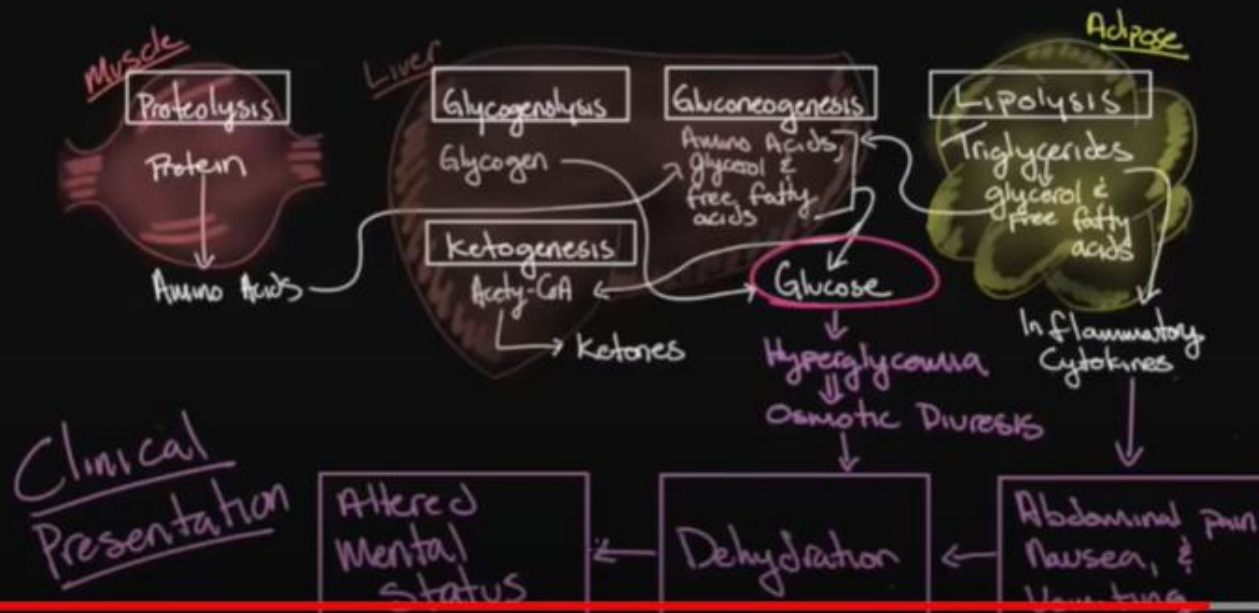 Muscle
Proteolysis
Protein
Amino Acids
Liver
Glycogenolysis
Glycogen
Ketogenesis
Acety-CoA
Ketones
Gluconeogenesis
Amino Acids,
glycerol &
free fatty
acids
Glucose
Hyperglycemia
Osmotic Diuresis
Adipose
Lipolysis
Triglycerides
glycerol &
free fatty
acids
Inflammatory
Cytokines
Clinical
Presentation
Altered
Mental
Status
Dehydration
Abdominal pain
Nausea, &
Vomiting